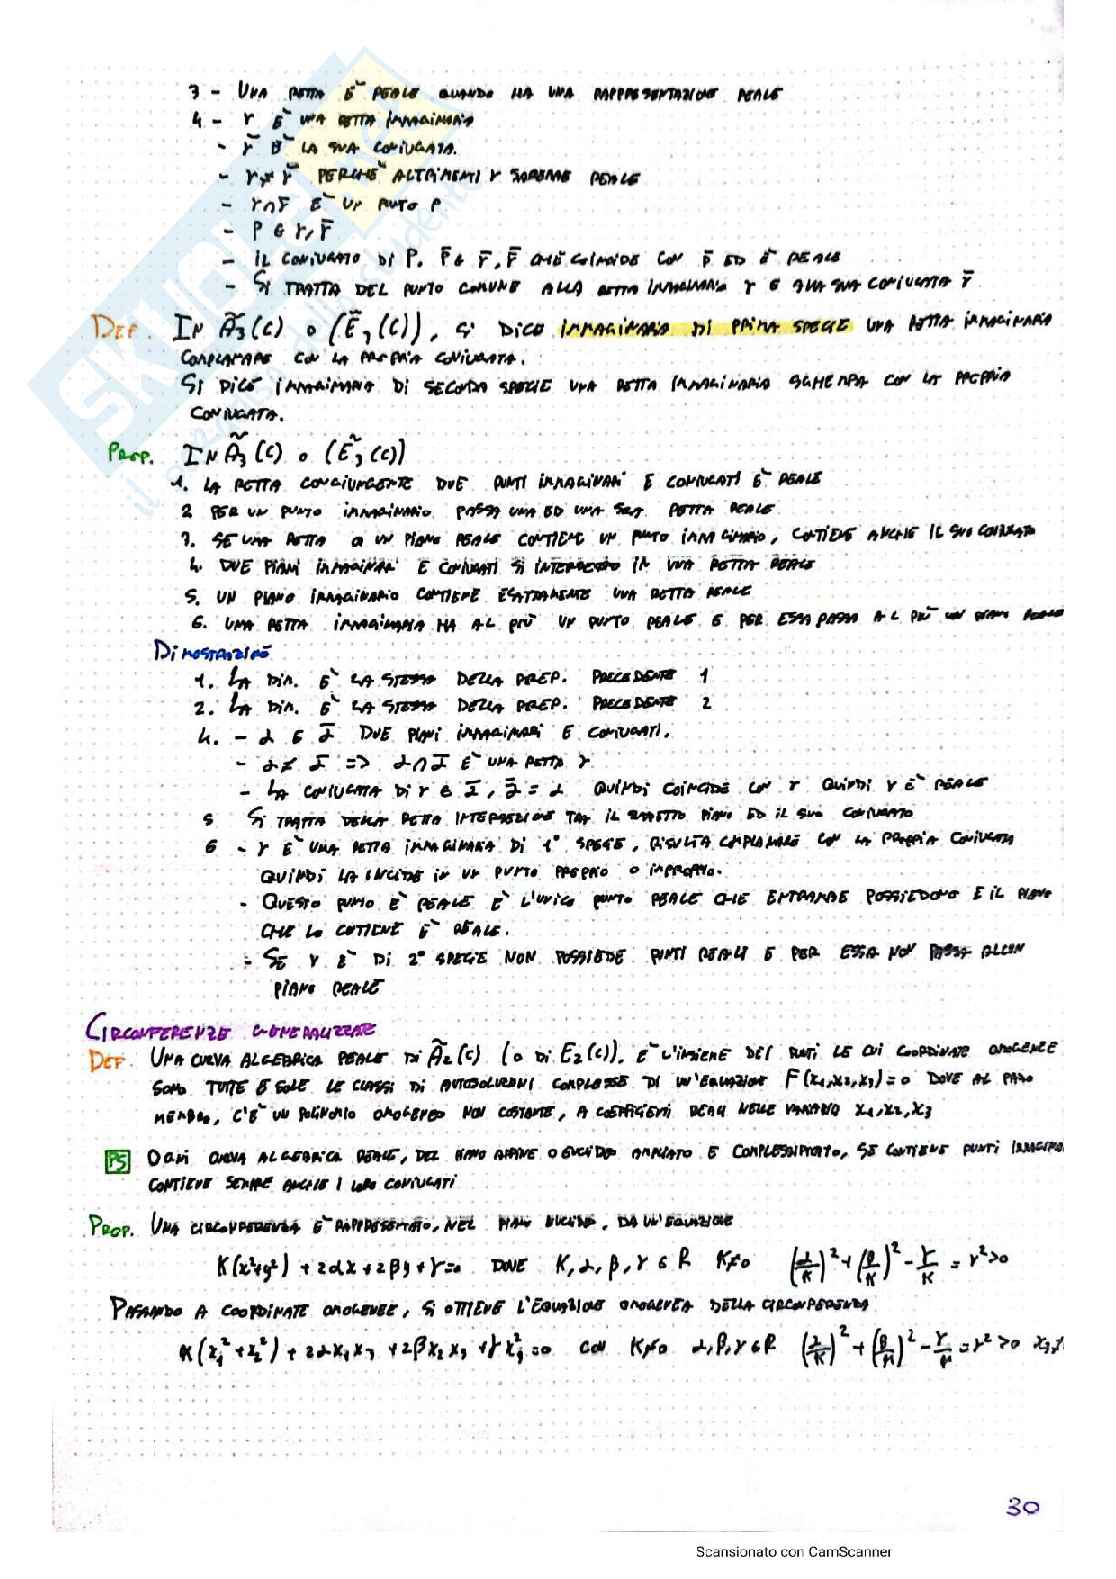 3 - UNA RETTA E' REALE QUANDO HA UNA RAPPRESENTAZIONE REALE
4 - r E' UNA RETTA IMMAGINARIA
- r̄ E' LA SUA CONIUGATA.
- r ≠ r̄ PERCHE' ALTRIMENTI r SAREBBE REALE
- r ∩ r̄ E' UN PUNTO P
- P ∈ r, r̄
- IL CONIUGATO DI P, P̄ ∈ r̄, r̿ CHE COINCIDE CON P̄ ED E' REALE
- SI TRATTA DEL PUNTO COMUNE ALLA RETTA IMMAGINARIA r E ALLA SUA CONIUGATA r̄
DEF. IN Ã₃(C) O (Ẽ₃(C)), SI DICE IMMAGINARIA DI PRIMA SPECIE UNA RETTA IMMAGINARIA
COMPLANARE CON LA PROPRIA CONIUGATA.
SI DICE IMMAGINARIA DI SECONDA SPECIE UNA RETTA IMMAGINARIA SGHEMBA CON LA PROPRIA
CONIUGATA.
PROP. IN Ã₃(C) O (Ẽ₃(C))
1. LA RETTA CONGIUNGENTE DUE PUNTI IMMAGINARI E CONIUGATI E' REALE
2 PER UN PUNTO IMMAGINARIO PASSA UNA ED UNA SOLA RETTA REALE
3. SE UNA RETTA O UN PIANO REALE CONTIENE UN PUNTO IMMAGINARIO, CONTIENE ANCHE IL SUO CONIUGATO
4. DUE PIANI IMMAGINARI E CONIUGATI SI INTERSECANO IN UNA RETTA REALE
5. UN PIANO IMMAGINARIO CONTIENE ESATTAMENTE UNA RETTA REALE
6. UNA RETTA IMMAGINARIA HA AL PIÙ UN PUNTO REALE E PER ESSA PASSA AL PIÙ UN PIANO REALE
DIMOSTRAZIONE
1. LA DIM. E' LA STESSA DELLA PROP. PRECEDENTE 1
2. LA DIM. E' LA STESSA DELLA PROP. PRECEDENTE 2
4. - α E ᾱ DUE PIANI IMMAGINARI E CONIUGATI.
- α ≠ ᾱ => α ∩ ᾱ E' UNA RETTA r
- LA CONIUGATA DI r ∈ ᾱ, ᾱ̄ = α QUINDI COINCIDE CON r QUINDI r E' REALE
5 SI TRATTA DELLA RETTA INTERSEZIONE TRA IL PIANO ED IL SUO CONIUGATO
6 - r E' UNA RETTA IMMAGINARIA DI 1° SPECIE, RISULTA COMPLANARE CON LA PROPRIA CONIUGATA
QUINDI LA INCIDE IN UN PUNTO PROPRIO O IMPROPRIO.
- QUESTO PUNTO E' REALE E' L'UNICO PUNTO REALE CHE ENTRAMBE POSSIEDONO E IL PIANO
CHE LO CONTIENE E' REALE.
- SE r E' DI 2° SPECIE NON POSSIEDE PUNTI REALI E PER ESSA NON PASSA ALCUN
PIANO REALE
CIRCONFERENZE GENERALIZZATE
DEF. UNA CURVA ALGEBRICA REALE DI Ã₂(C) (O DI E₂(C)). E' L'INSIEME DEI PUNTI LE CUI COORDINATE OMOGENEE
SONO TUTTE E SOLE LE CLASSI DI AUTOSOLUZIONI COMPLESSE DI UN'EQUAZIONE F(x₁,x₂,x₃)=0 DOVE AL PRIMO
MEMBRO, C'E' UN POLINOMIO OMOGENEO NON COSTANTE, A COEFFICIENTI REALI NELLE VARIABILI x₁,x₂,x₃
PS OGNI CURVA ALGEBRICA REALE, DEL PIANO AFFINE O EUCLIDEO AMPLIATO E COMPLESSIFICATO, SE CONTIENE PUNTI IMMAGINARI
CONTIENE SEMPRE ANCHE I LORO CONIUGATI
PROP. UNA CIRCONFERENZA E' RAPPRESENTATA, NEL PIANO EUCLIDEO, DA UN'EQUAZIONE
K(x²+y²) + 2αx + 2βy + γ=0 DOVE K, α, β, γ ∈ R K≠0 (α/K)² + (β/K)² - γ/K = r²>0
PASSANDO A COORDINATE OMOGENEE, SI OTTIENE L'EQUAZIONE OMOGENEA DELLA CIRCONFERENZA
K(x₁² + x₂²) + 2αx₁x₃ + 2βx₂x₃ + γx₃²=0 CON K≠0 α,β,γ∈R (α/K)² + (β/K)² - γ/K = r²>0
30
Scansionato con CamScanner